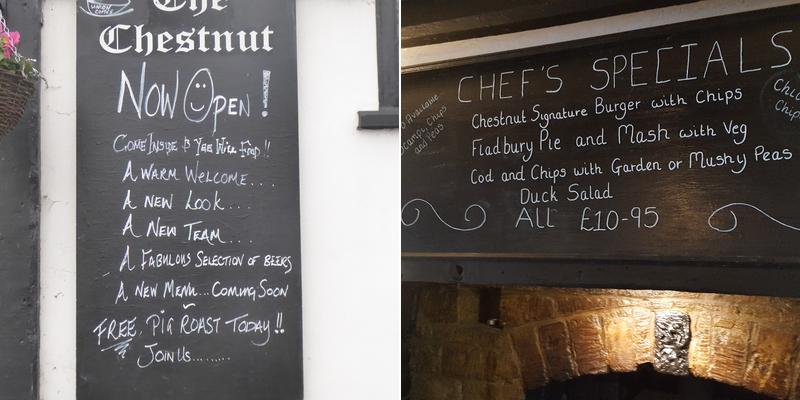 The
Chestnut
NOW OPEN!
COME INSIDE &
A WARM WELCOME....
A NEW LOOK....
A NEW TEAM....
A FABULOUS SELECTION OF BEERS
A NEW MENU... COMING SOON
FREE, PIG ROAST TODAY!!
JOIN US.........
CHEF'S SPECIALS
Chestnut Signature Burger with Chips
Fladbury Pie and Mash with Veg
Cod and Chips with Garden or Mushy Peas
Duck Salad
ALL £10-95
Available
Scampi, Chips
and Peas